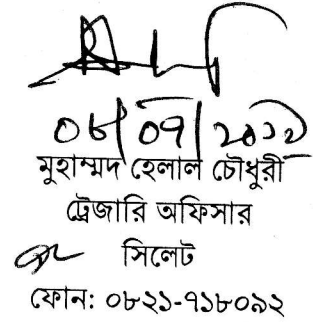 ০৮/০৭/২০১২
মুহাম্মদ হেলাল চৌধুরী
ট্রেজারি অফিসার
সিলেট
ফোন: ০৮২১-৭১৮০৯২